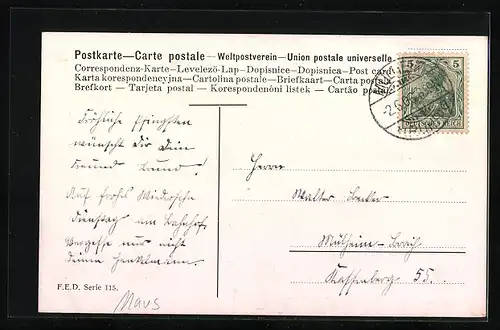 Postkarte—Carte postale—Weltpostverein—Union postale universelle.
Correspondenz-Karte—Levelező-Lap—Dopisnice—Dopisnica—Post card
Karta korespondencyjna—Cartolina postale—Briefkaart—Carta postal
Brefkort — Tarjeta postal — Korespondenóni listek — Cartão postal
5 5
DEUTSCHES REICH
Fröhliche Pfingsten
wünscht Dir Dein
Freund
Auf frohes Wiedersehn
Dienstag am Bahnhof.
Vergesse nur nicht
Deinen
Herrn
Walter Becker
Mülheim-Broich
Kassenberg 55.
F.E.D. Serie 115.
Maus